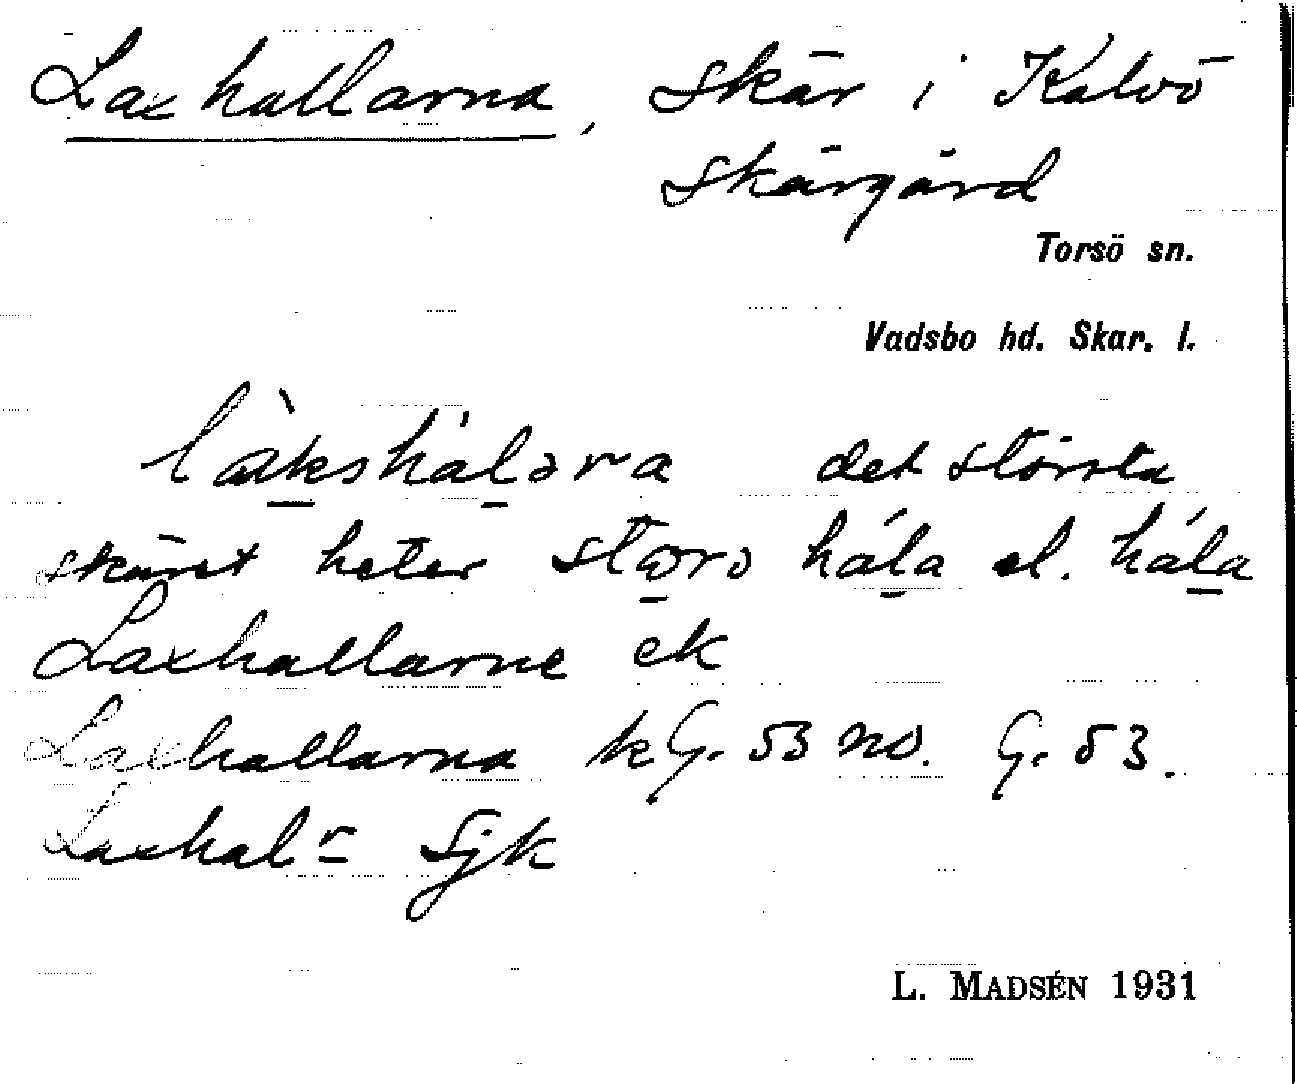 Laxhallarna, skär i Kalvö
skärgård
Torsö sn.
Vadsbo hd. Skar. l.
làkshálara det största
skäret heter storo hála el. hála
Laxhallarne ek
Laxhallarna kG. 53 no. G. 53.
Laxhalr Sjk
L. MADSÉN 1931